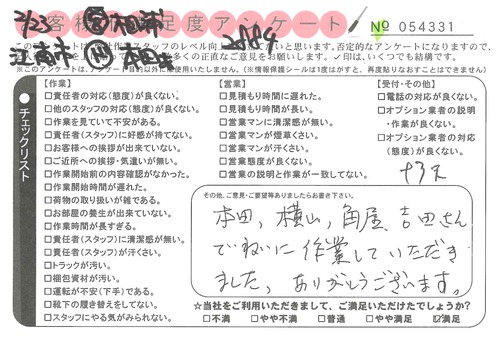 お客様満足度アンケート
№ 054331
2/23
江南市
このアンケートは弊社作業スタッフのレベル向上
と思います。否定的なアンケートになりますので、
多くの正直なご意見をお願いします。✓印は、いくつでも結構です。
※このアンケートは、アンケート目的以外に使用いたしません。(※情報保護シールは1度はがすと、再度貼りなおすことはできません)
チェックリスト
【作業】
□責任者の対応(態度)が良くない。
□他のスタッフの対応(態度)が良くない。
□作業を見ていて不安がある。
□責任者(スタッフ)に好感が持てない。
□お客様への挨拶が出来ていない。
□ご近所への挨拶・気遣いが無い。
□作業開始前の内容確認がなかった。
□作業開始時間が遅れた。
□荷物の取り扱いが雑である。
□お部屋の養生が出来ていない。
□作業時間が長すぎる。
□責任者(スタッフ)に清潔感が無い。
□責任者(スタッフ)が汗くさい。
□トラックが汚い。
□梱包資材が汚い。
□運転が不安(下手)である。
□靴下の履き替えをしてない。
□スタッフにやる気がみられない。
【営業】
□見積もり時間に遅れた。
□見積もり時間が長い。
□営業マンに清潔感が無い。
□営業マンが煙草くさい。
□営業マンが汗くさい。
□営業態度が良くない。
□営業の説明と作業が一致してない。
【受付・その他】
□電話の対応が良くない。
□オプション業者の説明
・作業が良くない。
□オプション業者の対応
(態度)が良くない。
その他、ご意見・ご要望等ありましたらお書き下さい。
本田、横山、角屋、吉田さん
でねいに作業していただき
ました。ありがとうございます。
☆当社をご利用いただきまして、ご満足いただけたでしょうか?
□不満 □やや不満 □普通 □やや満足 ☑満足